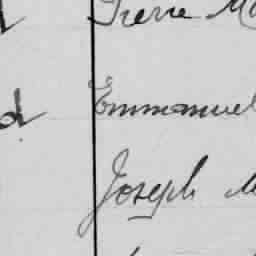 Pierre
d Emmanuel
Joseph